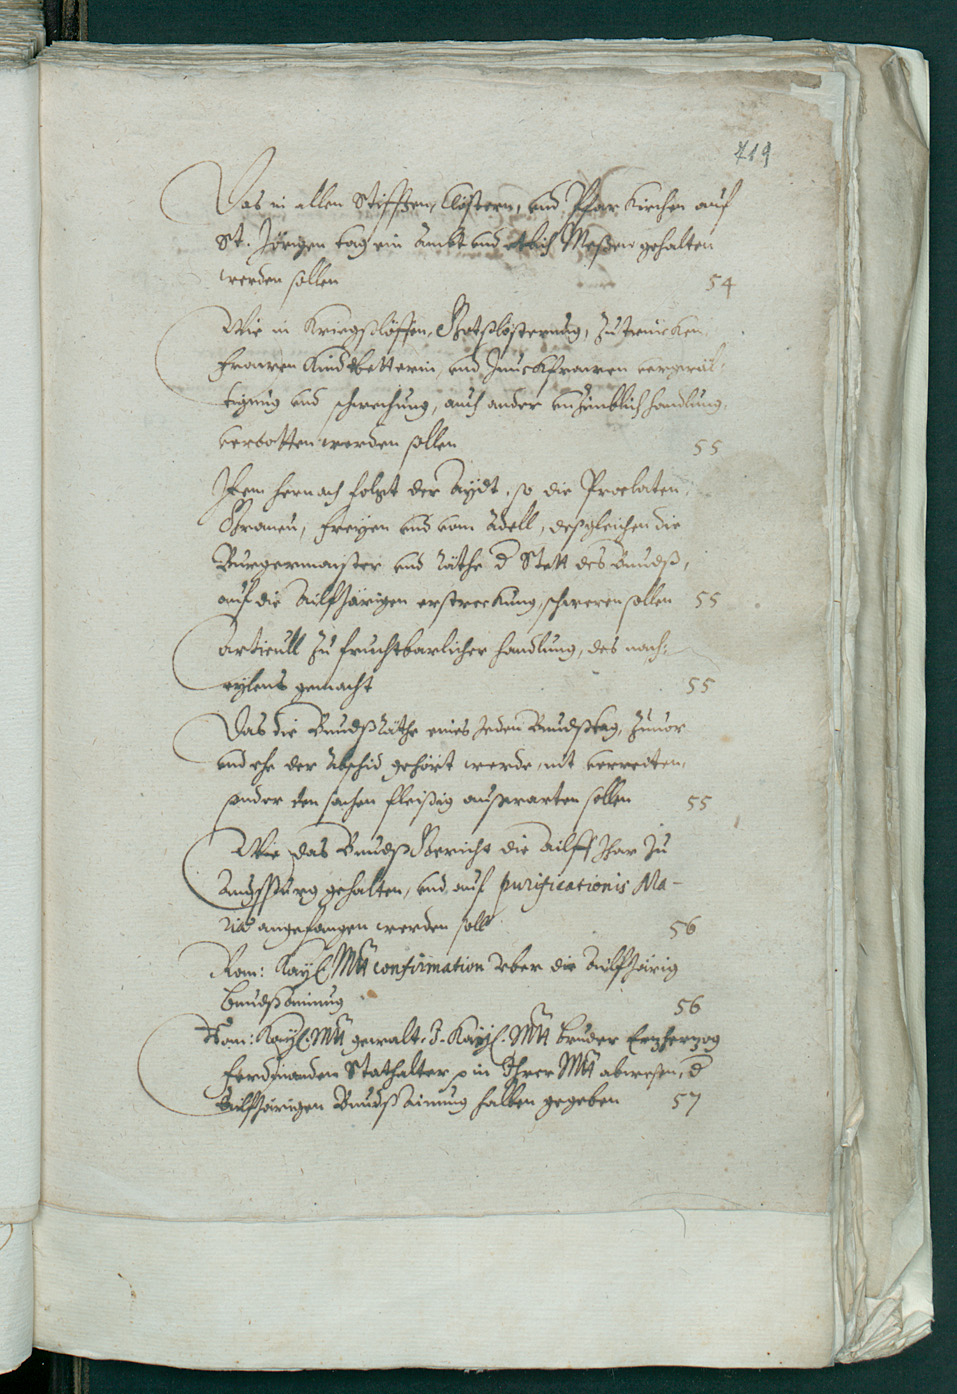 419
Das in allen Stifften, Clöstern, und Pfar Kirchen auf
St. Jörgen tag ein Ambt und etlich Meßen gehalten
werden sollen 54
Wie in Kriegßlöffen, Gottßlösterung, Zutrincken
Frawen Kindtbetterin, und Junckfrawen vergwäl-
tigung und schwechung, auch ander unzimblich handlung,
verbotten werden sollen 55
Item hernach folgt der Aydt, so die Praelaten,
Graven, Freyen und vom Adell, deßgleichen die
Burgermaister und Räthe d Stett des Bundß,
auf die Ailfjärigen erstreckung, schweren sollen 55
Articull zu fruchtbarlicher handlung, des nach-
eylens gemacht 55
Das die Bundßräthe eines jeden Bundßtag, zuuor
und ehe der Abschid gehört werde, nit verreiten,
sonder den sachen fleißig außwarten sollen 55
Wie das Bundß Gericht die ailff Jhar zu
Augspurg gehalten, und auf purificationis Ma-
riae angefangen werden soll 56
Rom: Kayß. Mtt confirmation Vber die Ailfjärig
bundßainung 56
Rom: Kayß. Mtt gewalt, J. Kayß. Mtt bruder Erzherzog
Ferdinanden Stathalter in Jhrer Mtt abwesen, d
Ailfjärigen Bundß Ainung halben gegeben 57